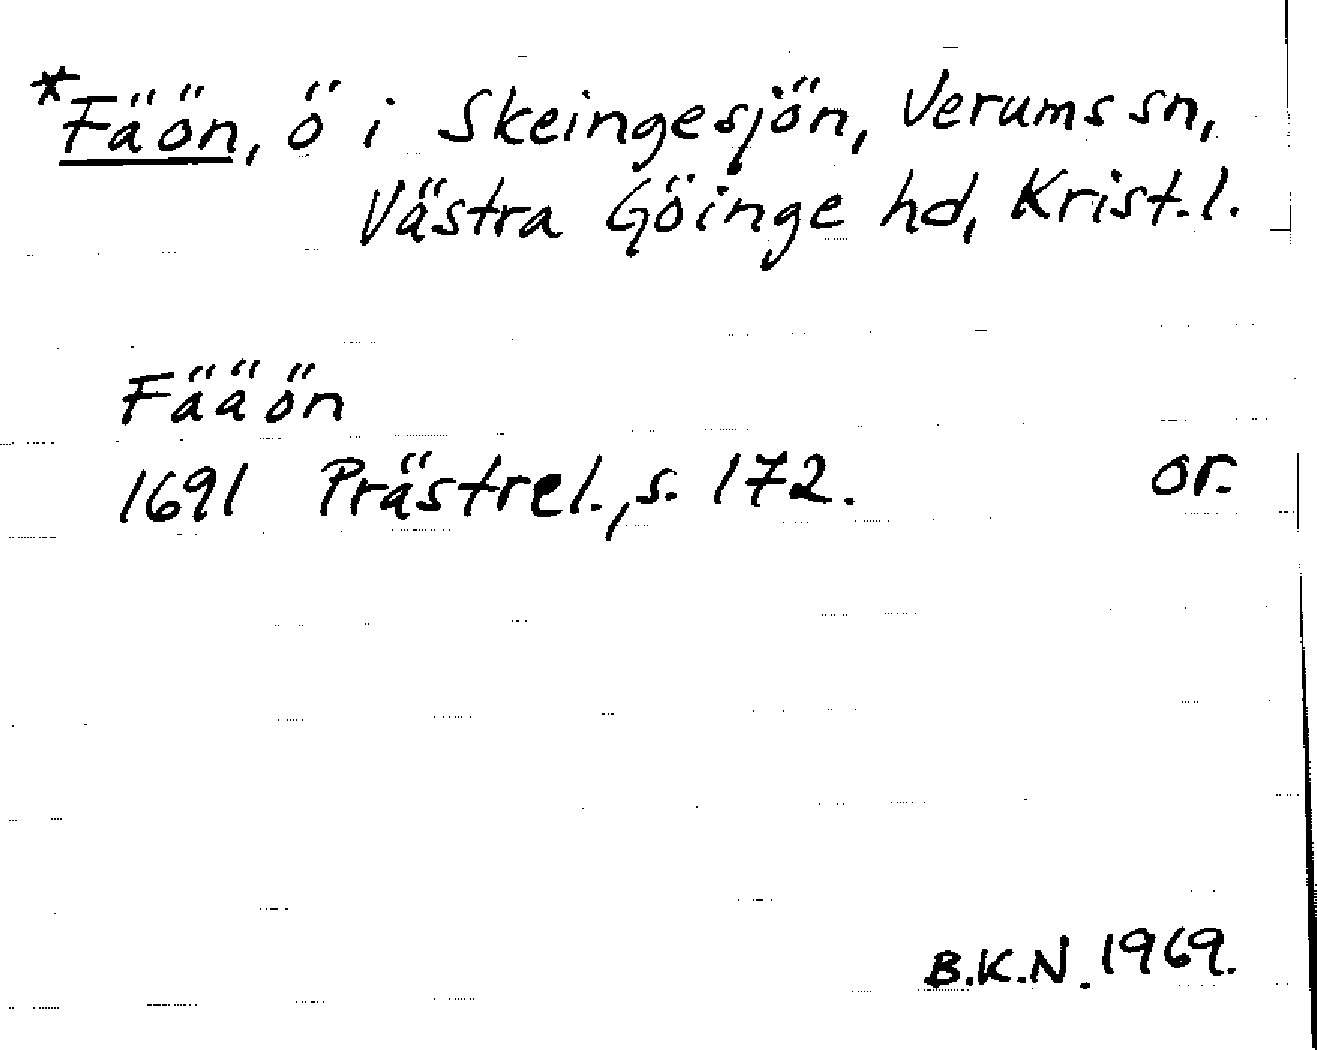 *Fäön, ö i Skeingesjön, Verums sn,
Västra Göinge hd, Krist. l.
Fääön
1691 Prästrel., s. 172. or.
B.K.N. 1969.